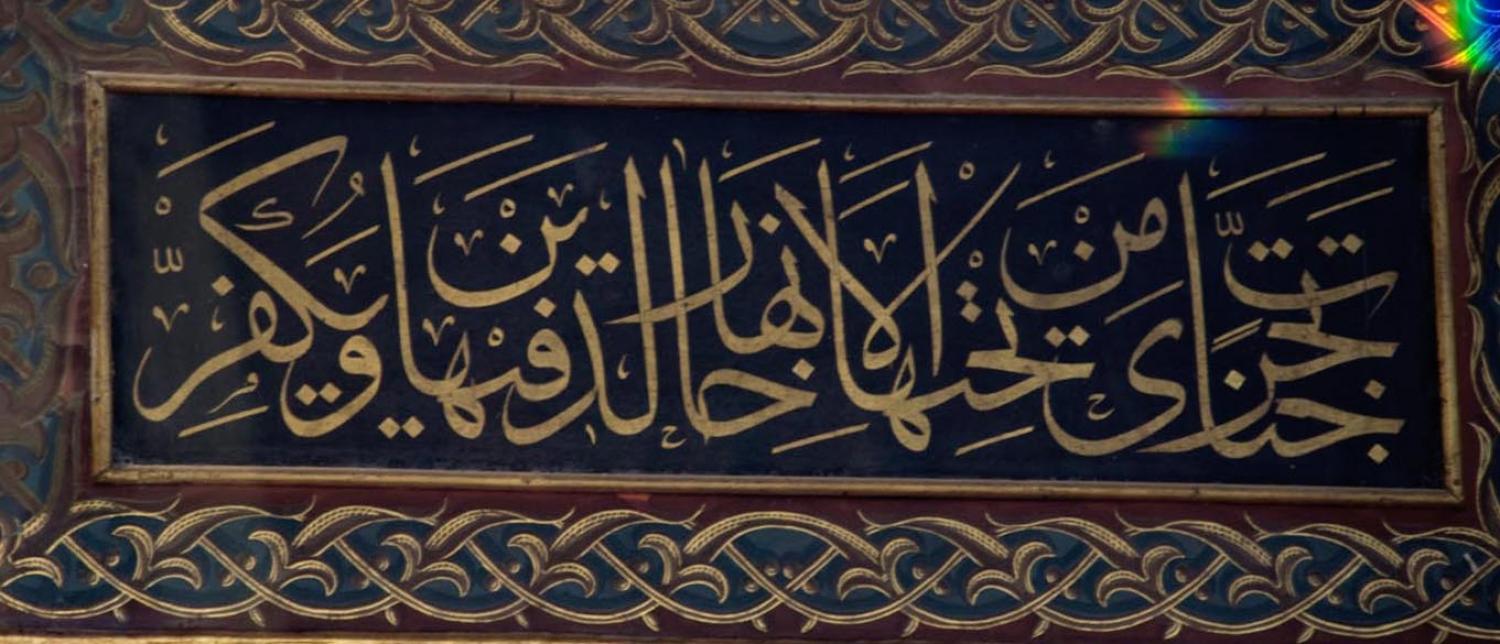 جَنَّاتٍ تَجْرِي مِنْ تَحْتِهَا الْأَنْهَارُ خَالِدِينَ فِيهَا وَيُكَفِّرَ